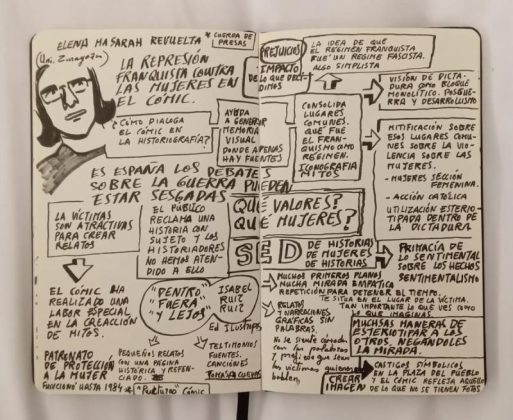 ELENA MASARAH REVUELTA
(Uni. Zaragoza)
* CUERDA DE
PRESAS
LA REPRESIÓN
FRANQUISTA CONTRA
LAS MUJERES EN
EL CÓMIC.
¿CÓMO DIALOGA
EL CÓMIC EN
LA HISTORIOGRAFÍA?
AYUDA
A GENERAR
MEMORIA
VISUAL
DONDE APENAS
HAY FUENTES
ES ESPAÑA LOS DEBATES
SOBRE LA GUERRA PUEDEN
ESTAR SESGADAS
LA VÍCTIMAS
SON ATRACTIVAS
PARA CREAR
RELATOS
EL PÚBLICO
RECLAMA UNA
HISTORIA CON
SUJETO Y LOS
HISTORIADORES
NO HEMOS ATEN-
DIDO A ELLO
EL CÓMIC HA
REALIZADO UNA
LABOR ESPECIAL
EN LA CREACIÓN
DE MITOS.
"DENTRO"
"FUERA"
Y LEJOS"
ISABEL
RUIZ
RUIZ
PATRONATO
DE PROTECCIÓN
A LA MUJER
FUNCIONÓ HASTA 1984
PEQUEÑOS RELATOS
CON UNA PÁGINA
HISTÓRICA Y REFEN-
CIADO.
TESTIMONIOS
FUENTES.
CANCIONES
CÓMIC
PREJUICIOS
IMPACTO
DE LO QUE DECI-
DIMOS
LA IDEA DE QUE
EL RÉGIMEN FRANQUISTA
FUE UN REGIME FASCISTA.
ALGO SIMPLISTA
CONSOLIDA
LUGARES
COMUNES.
QUÉ FUE
EL FRAN-
QUISMO COMO
RÉGIMEN.
ICONOGRAFÍA
MITOS
VISIÓN DE DICTA-
DURA COMO BLOQUE
MONOLÍTICO. POSGUE-
RRA Y DESARROLLISMO
MITIFICACIÓN SOBRE
ESOS LUGARES COMU-
NES SOBRE LA VIO-
LENCIA SOBRE LAS
MUJERES.
- MUJERES SECCIÓN
FEMENINA.
- ACCIÓN CATÓLICA
UTILIZACIÓN ESTERIO-
TIPADA DENTRO DE
LA DICTADURA
QUÉ VALORES?
QUÉ MUJERES?
SED DE HISTORIAS
DE MUJERES
DE HISTORIAS
PRIMACÍA DE
LO SENTIMENTAL
SOBRE LOS HECHOS
SENTIMENTALISMO
MUCHOS PRIMEROS PLANOS
MUCHA MIRADA EMPÁTICA
REPETICIÓN PARA DETENER EL TIEMPO.
TE SITUA EN EL LUGAR DE LA VÍCTIMA.
TAN IMPORTANTE LO QUE VES COMO
LO QUE IMAGINAS.
RELATOS
Y NARRACIONES
GRÁFICAS SIN
PALABRAS.
MUCHSAS MANERAS DE
ESTEREOTIPAR A LOS
OTROS. NEGÁNDOLES
LA MIRADA.
CREAR
IMAGEN
CASTIGOS SIMBÓLICOS
EN LA PLAZA DEL PUEBLO
Y EL CÓMIC REFLEJA AQUELLO
DE LO QUE NO SE TIENEN FOTOS